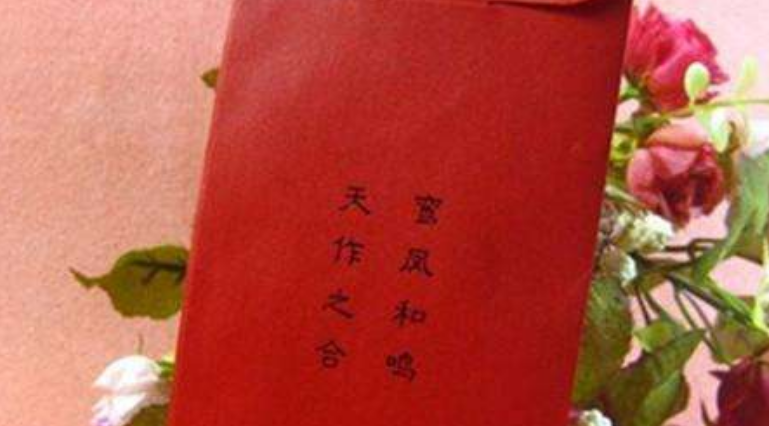 鸾凤和鸣
天作之合